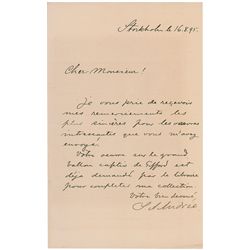 Stockholm le 16.8.95.
Cher Monsieur!
Je vous prie de reçevoir
mes remerciements les
plus sincères pour les oeuvres
intéressantes que vous m'avez
envoyé.
Votre oeuvre sur le grand
ballon captif de Giffard est
déjà demandé par le libraire
pour completter ma collection.
Votre bien devoué
S A Andrée